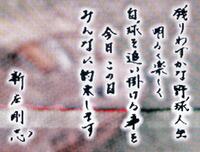 残りわずかな野球人生
明るく楽しく
白球を追い掛ける事を
今日この日
みんなに約束します
新庄剛志